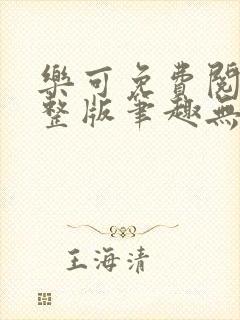 樂可免費閱
整版筆趣無
王海清